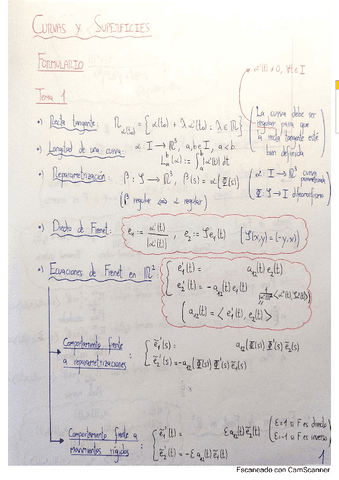 CURVAS Y SUPERFICIES
FORMULARIO
α'(t) ≠ 0, ∀t ∈ I
Tema 1
• Recta tangente: R_α(t₀) = {α(t₀) + λ α'(t₀) : λ ∈ ℝ}
(La curva debe ser regular para que la recta tangente esté bien definida)
• Longitud de una curva: α : I → ℝ³, a, b ∈ I, a < b
L_a^b(α) := ∫_a^b |α'(t)| dt
• Reparametrización: β : J → ℝ³, β(s) = α(Φ(s))
(α : I → ℝ³ curva parametrizada
Φ : J → I difeomorfismo)
(β regular ⟺ α regular)
• Diedro de Frenet: e₁ := α'(t) / |α'(t)|, e₂ := J e₁(t) [J(x,y) = (-y,x)]
• Ecuaciones de Frenet en ℝ²: { e₁'(t) = a₁₂(t) e₂(t)
e₂'(t) = -a₁₂(t) e₁(t)
(a₁₂(t) = <e₁'(t), e₂(t)>
Comportamiento frente a reparametrizaciones: { ẽ₁'(s) = a₁₂(Φ(s)) Φ'(s) ẽ₂(s)
ẽ₂'(s) = -a₁₂(Φ(s)) Φ'(s) ẽ₁(s)
Comportamiento frente a movimientos rígidos: { ẽ₁'(t) = ε a₁₂(t) ẽ₂(t)
ẽ₂'(t) = -ε a₁₂(t) ẽ₁(t)
(ε=1 si F es directo
ε=-1 si F es inverso)
1
Escaneado con CamScanner